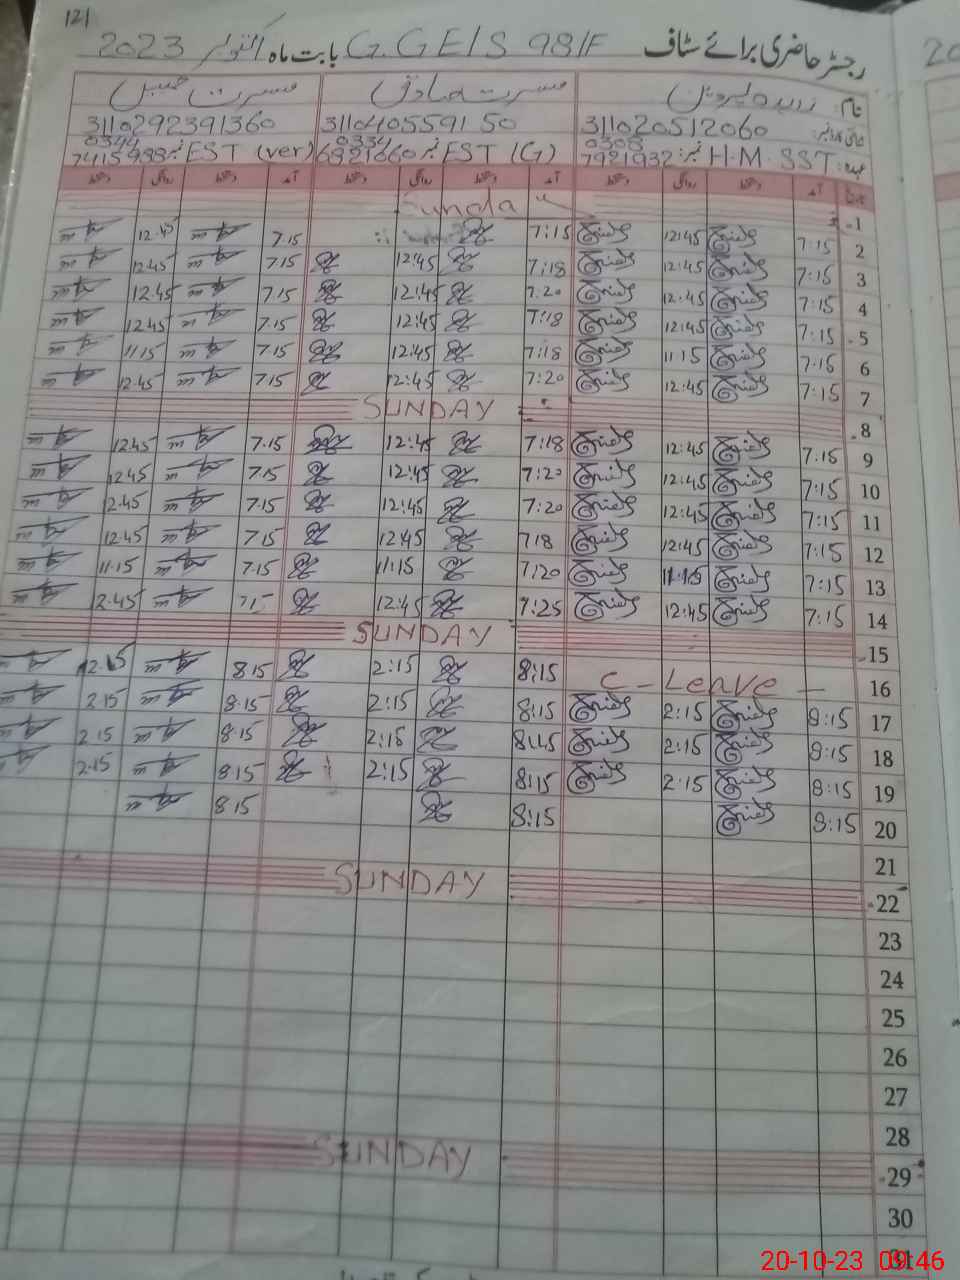 121
رجسٹر حاضری برائے سٹاف G.GEIS 98/F بابت ماہ اکتوبر 2023
نام: زبیدہ پروین مسرت صادق مسرت
311020512060 311040559150 3110292391360
0308 0334 0344
عہدہ: H.M. SST نمبر: 7921932 EST (G) نمبر 6821660 EST (ver) نمبر 7415988
تاریخ آمد دستخط روانگی دستخط آمد دستخط روانگی دستخط آمد دستخط روانگی دستخط
1 Sunda
2 7:15 12:45 7:15 7.15 12.45
3 7:15 12:45 7:18 12:45 7.15 12.45
4 7:15 12:45 7:20 12:45 7.15 12.45
5 7:15 12:45 7:18 12:45 7.15 12.45
6 7:15 11:15 7:18 12:45 7.15 11.15
7 7:15 12:45 7:20 12:45 7.15 12.45
8 SUNDAY
9 7:15 12:45 7:18 12:45 7.15 12.45
10 7:15 12:45 7:20 12:45 7.15 12.45
11 7:15 12:45 7:20 12:45 7.15 2.45
12 7:15 12:45 7:18 12:45 7.15 12.45
13 7:15 11:15 7:20 11:15 7.15 11.15
14 7:15 12:45 7:25 12:45 2.45
15 SUNDAY
16 C - Leave - 8:15 2:15 8.15 2.15
17 8:15 2:15 8:15 2:15 8.15 2.15
18 8:15 2:15 8:45 2:15 8.15 2.15
19 8:15 2:15 8:15 2:15 8.15 2.15
20 8:15 8:15 8.15
21
22 SUNDAY
23
24
25
26
27
28
29 SUNDAY
30
31
20-10-23 09:46